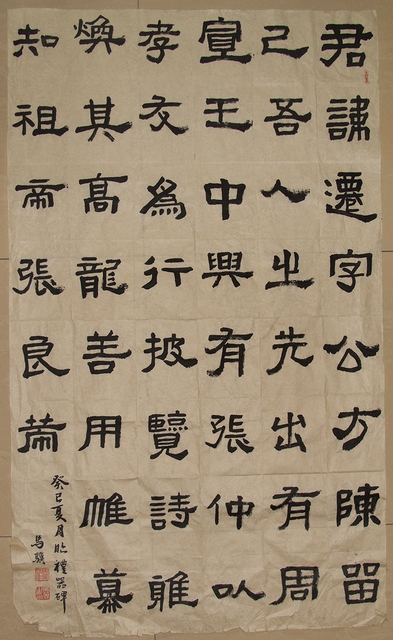 君諱遷字公方陳留
己吾人也先出有周
宣王中興有張仲以
孝友爲行披覽詩雅
煥其高龍善用帷幕
知祖帝張良
癸巳夏月临禮器碑
馬驥